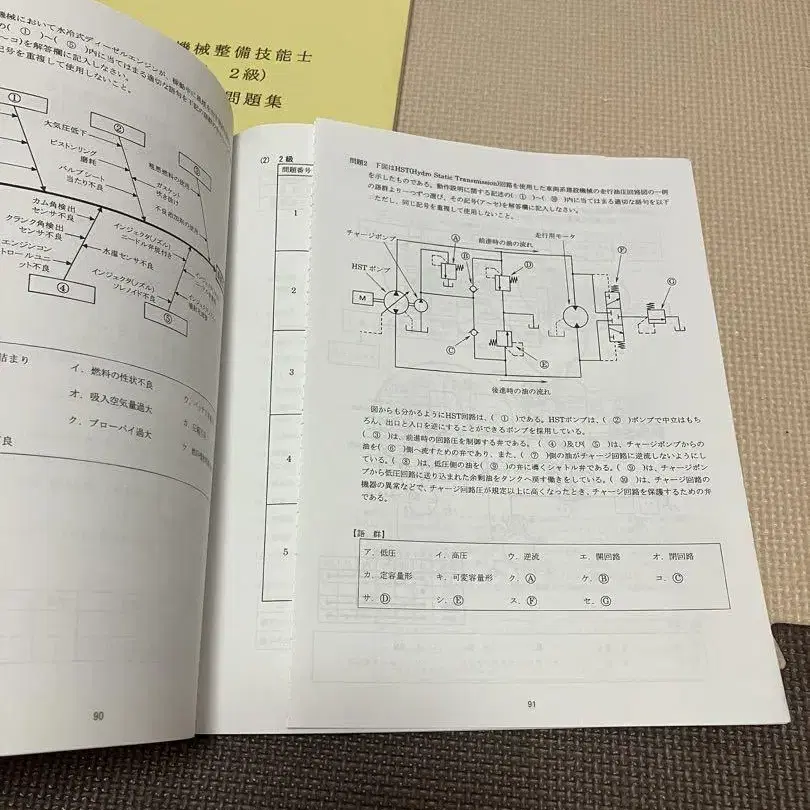 機械整備技能士
2級)
問題集
機械において水冷式ディーゼルエンジンが、
の( ① )~( ⑤ )内に当てはまる適切な語句を下記の
~コ)を解答欄に記入しなさい。
記号を重複して使用しないこと。
①
②
③
大気圧低下
ピストンリング
磨耗
バルブシート
当たり不良
粗悪燃料の使用
ガスケット
吹き抜け
不良添加剤の使用
カム角検出
センサ不良
クランク角検出
センサ不良
エンジンコン
トロールユニ
ット不良
水温センサ不良
インジェクタ(ノズル)
ニードル弁焼付き
インジェクタ(ノズル)
ソレノイド不良
④
⑤
詰まり
イ. 燃料の性状不良
オ. 吸入空気量過大
ク. ブローバイ過大
不良
90
(2) 2級
問題番号
1
2
3
4
5
問題2 下図はHST(Hydro Static Transmission)回路を使用した車両系建設機械の走行油圧回路図の一例
を示したものである。動作説明に関する記述の( ① )~( ⑩ )内に当てはまる適切な語句を以下
の語群より一つずつ選び、その記号(ア~セ)を解答欄に記入しなさい。
ただし、同じ記号を重複して使用しないこと。
チャージポンプ
HST ポンプ
前進時の油の流れ
走行用モータ
M
Ⓐ
Ⓑ
Ⓒ
Ⓓ
Ⓔ
Ⓕ
Ⓖ
後進時の油の流れ
図からも分かるようにHST回路は、( ① )である。HSTポンプは、( ② )ポンプで中立はもち
ろん、出口と入口を逆にすることができるポンプを採用している。
( ③ )は、前進時の回路圧を制御する弁である。( ④ )及び( ⑤ )は、チャージポンプからの
油を( ⑥ )側へ流すための弁であり、また、( ⑦ )側の油がチャージ回路に逆流しないようにし
ている。( ⑧ )は、低圧側の油を( ⑨ )の弁に導くシャトル弁である。( ⑨ )は、チャージポン
プから低圧回路に送り込まれた余剰油をタンクへ戻す働きをしている。( ⑩ )は、チャージ回路の
機器の異常などで、チャージ回路圧が規定以上に高くなったとき、チャージ回路を保護するための弁
である。
【語 群】
ア. 低圧 イ. 高圧 ウ. 逆流 エ. 開回路 オ. 閉回路
カ. 定容量形 キ. 可変容量形 ク. Ⓐ ケ. Ⓑ コ. Ⓒ
サ. Ⓓ シ. Ⓔ ス. Ⓕ セ. Ⓖ
91